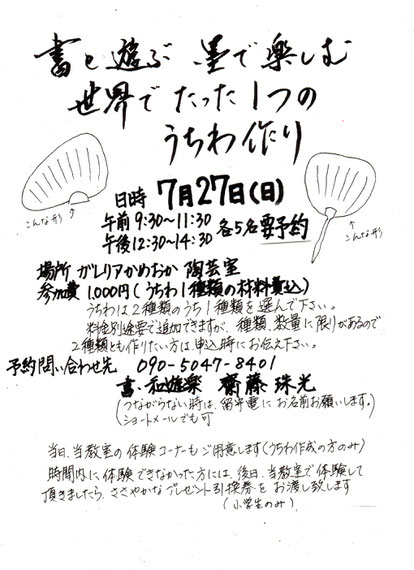 書と遊ぶ 墨で楽しむ
世界でたった1つの
うちわ作り
こんな形
日時 7月27日(日)
午前9:30〜11:30
午後12:30〜14:30
各5名要予約
こんな形
場所 ガレリアかめおか 陶芸室
参加費 1,000円(うちわ1種類の材料費込)
うちわは2種類のうち1種類を選んで下さい。
料金別途要で追加できますが、種類、数量に限りがあるので
2種類とも作りたい方は、申込時にお伝え下さい。
予約問い合わせ先 090-5047-8401
書・和遊楽 齋藤珠光
(つながらない時は、留守電にお名前お願いします。)
ショートメールでも可
当日、当教室の体験コーナーもご用意します(うちわ作成の方のみ)
時間内に体験できなかった方には、後日、当教室で体験して
頂きましたら、ささやかなプレゼント引換券をお渡し致します
(小学生のみ)